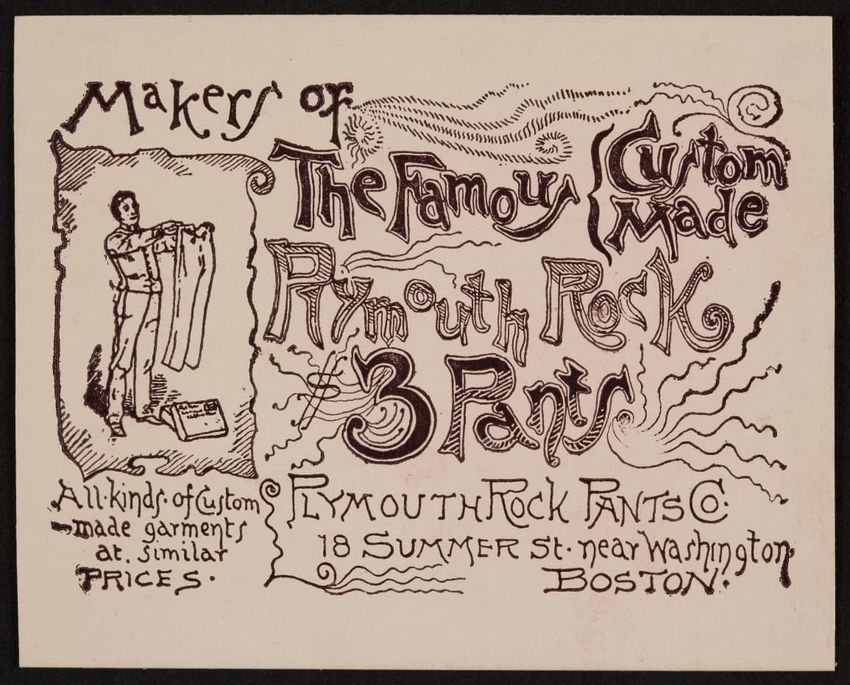 Makers of
The Famous { Custom Made
Plymouth Rock
$3 Pants
All kinds of Custom
made garments
at. similar
PRICES.
PLYMOUTH ROCK PANTS CO.
18 SUMMER St. near Washington,
BOSTON.